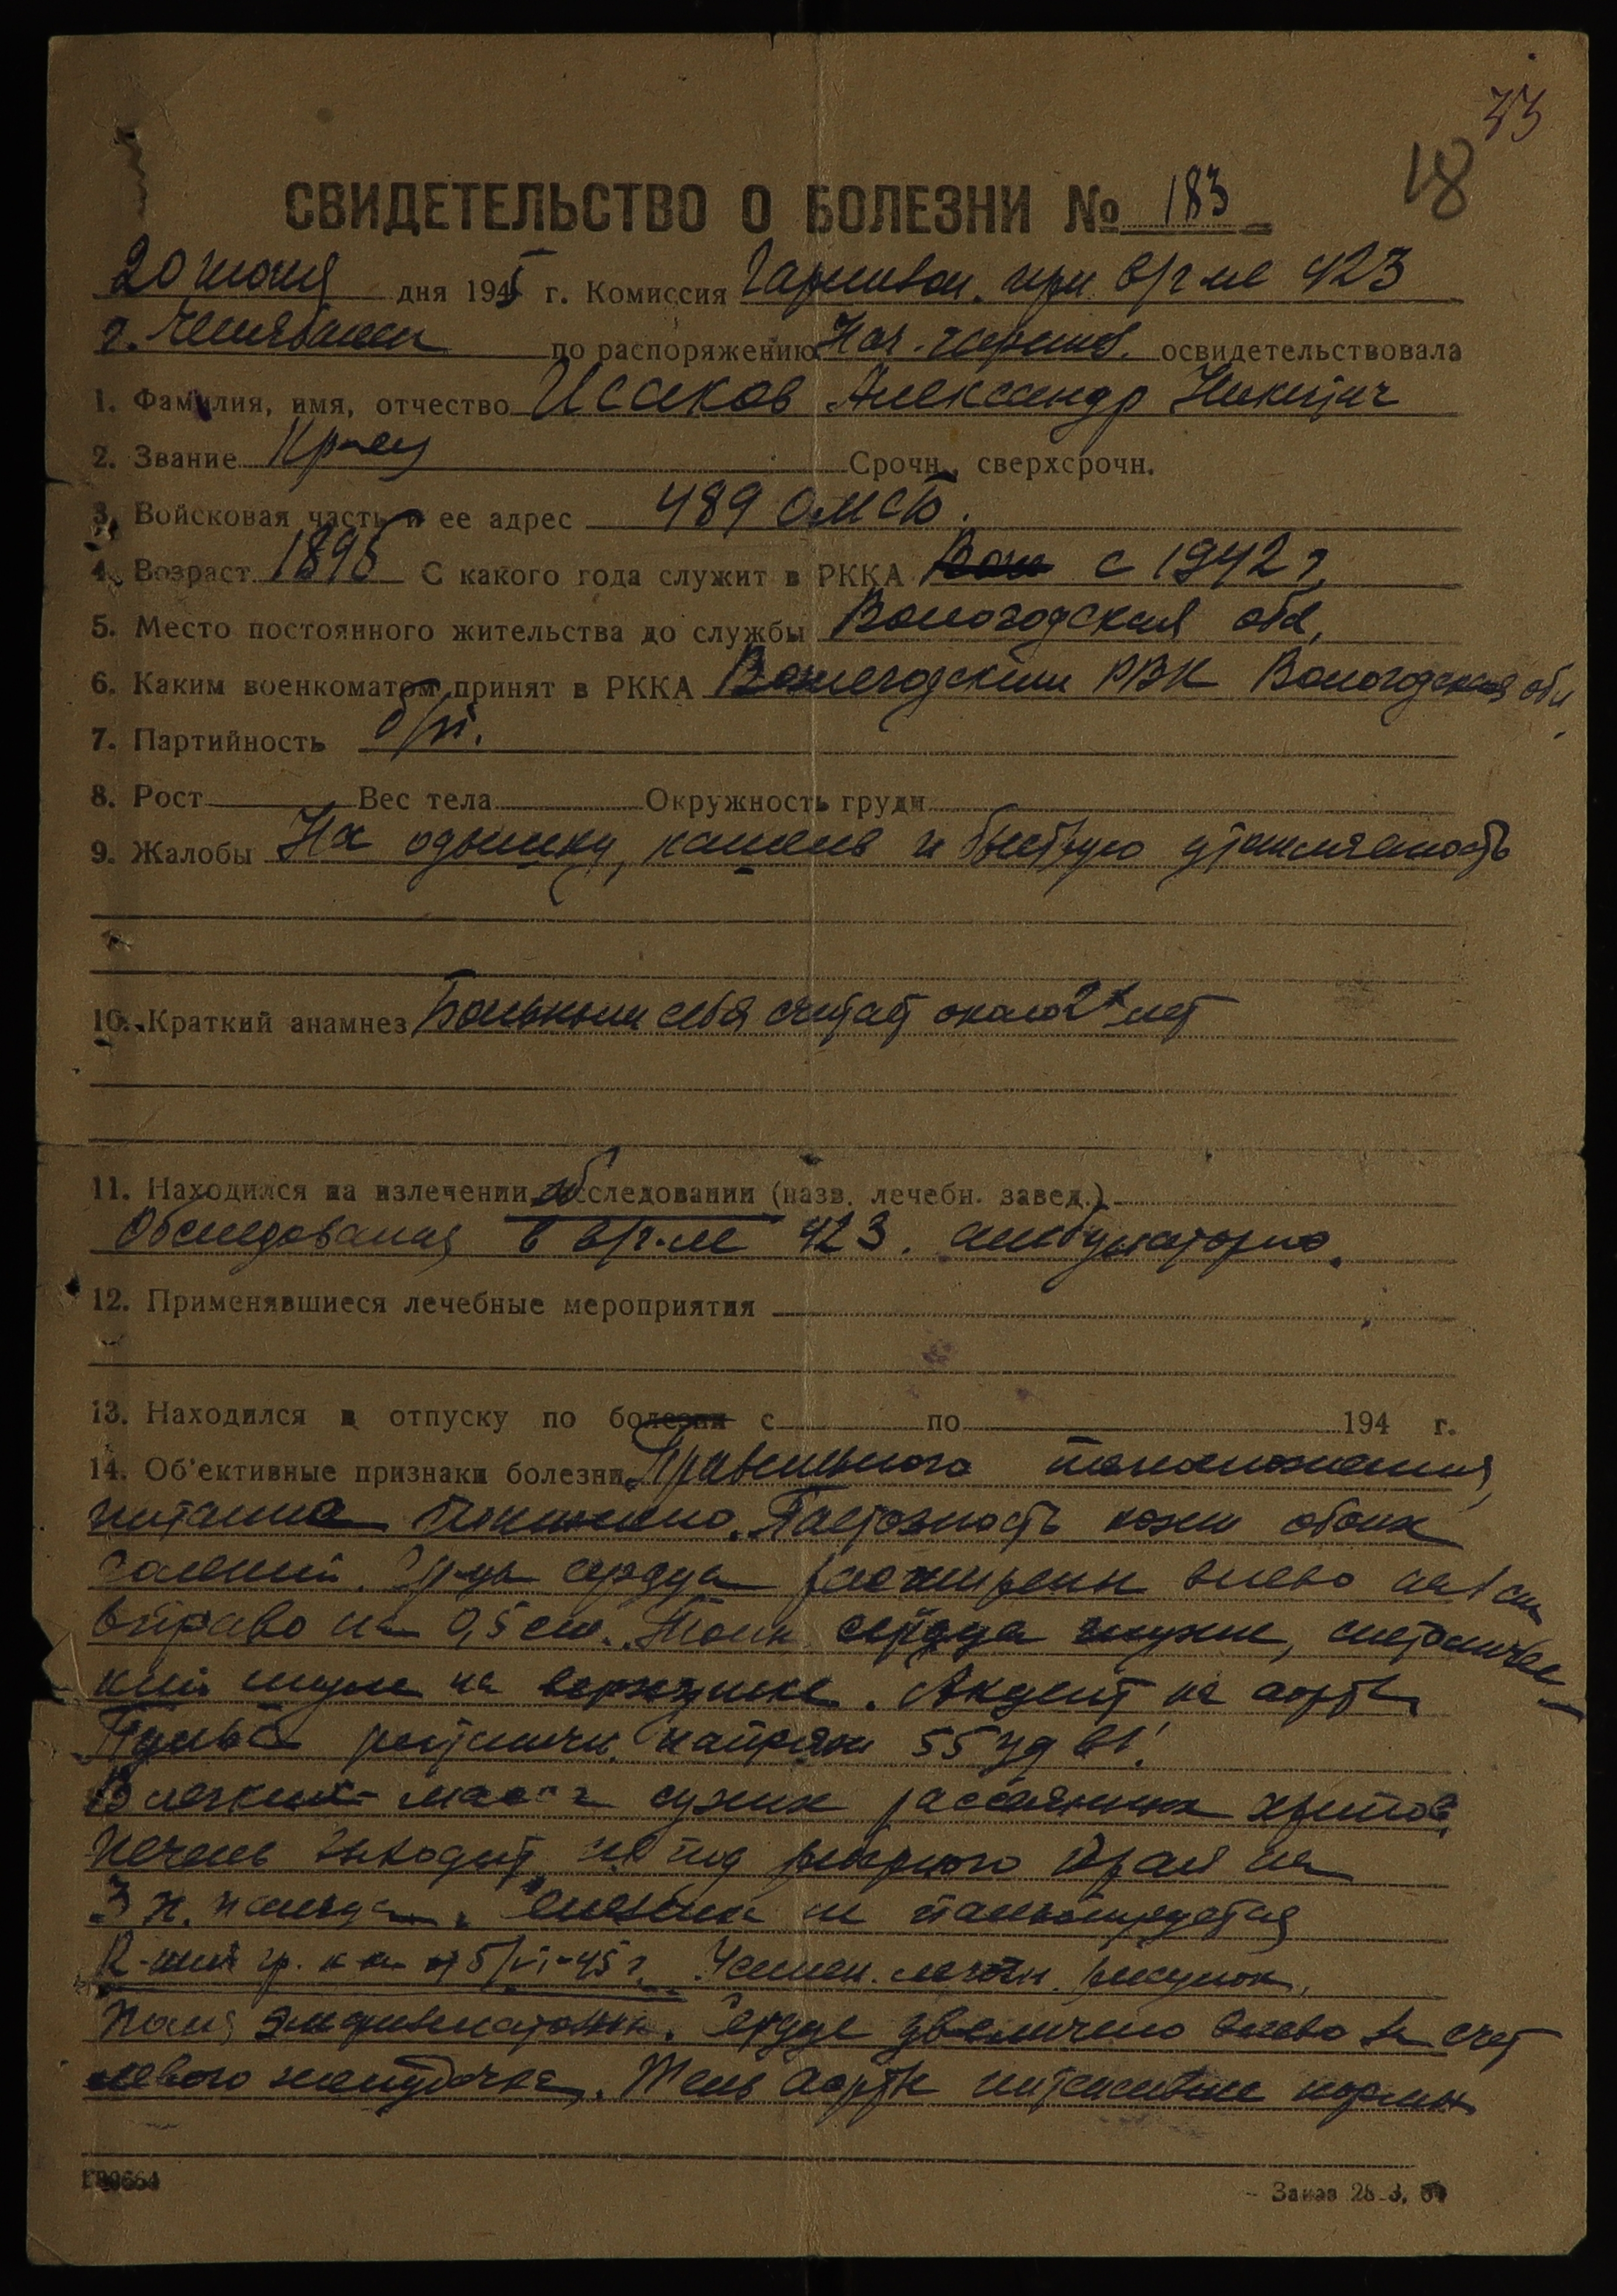 33
18
СВИДЕТЕЛЬСТВО О БОЛЕЗНИ № 183
20 июня дня 1945 г. Комиссия Гарнизон. при в/г-ле 423
г. Челябинск по распоряжению Нач. гарниз. освидетельствовала
1. Фамилия, имя, отчество Исаков Александр Никитич
2. Звание Кр-ец Срочн., сверхсрочн.
3. Войсковая часть и ее адрес 489 ОМСБ.
4. Возраст 1895 С какого года служит в РККА с 1942 г.
5. Место постоянного жительства до службы Вологодская обл.
6. Каким военкоматом принят в РККА Вожегодским РВК Вологодская обл.
7. Партийность б/п.
8. Рост Вес тела Окружность груди
9. Жалобы На одышку, кашель и быструю утомляемость
10. Краткий анамнез Больным себя считает около 2х лет
11. Находился на излечении, обследовании (назв. лечебн. завед.)
Обследования в в/г-ле 423. амбулаторно.
12. Применявшиеся лечебные мероприятия
13. Находился в отпуску по болезни с по 194 г.
14. Об'ективные признаки болезни Правильного телосложения,
питание понижено. Пастозность кожи обоих
голеней. Гр-цы сердца расширены влево на 1 см
вправо на 0,5 см. Тоны сердца глухие, систоличес-
кий шум на верхушке. Акцент на аорте.
Пульс ритмичн. напряж 55 уд в 1'.
В легких масса сухих рассеянных хрипов,
печень выходит из под реберного края на
3 п. пальца. Селезенка не пальпируется
R-ския гр. к-ки от 5/VI-45 г. Усилен. легочн. рисунок,
Поля эмфизематозны. Сердце увеличено влево за счет
левого желудочка. Тень аорты интенсивнее нормы
Заказ 28